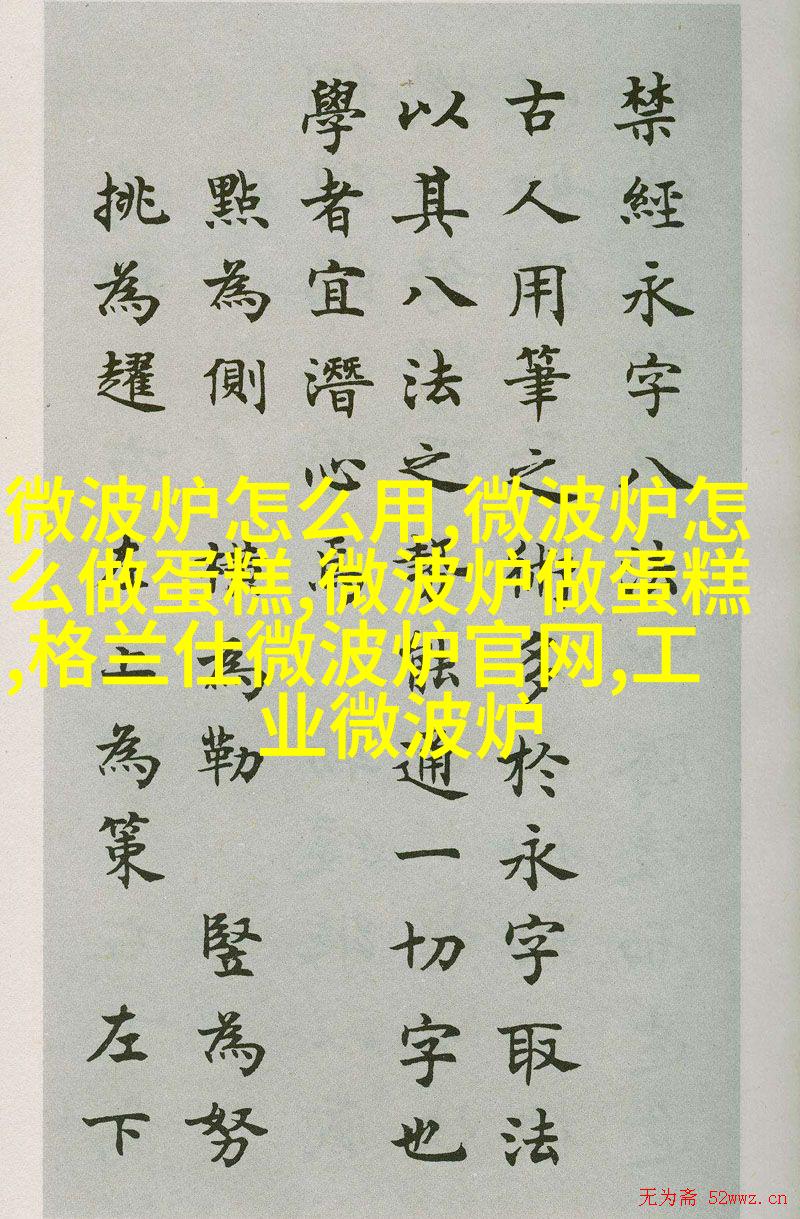 禁經永字八法
古人用筆之術多於永字取法
以其八法之勢能通一切字也
學者宜潛心焉
點為側 橫為勒 竪為努
挑為趯 左上為策 左下
微波炉怎么用,微波炉怎
么做蛋糕,微波炉做蛋糕
,格兰仕微波炉官网,工
业微波炉
无为斋 52wwz.cn